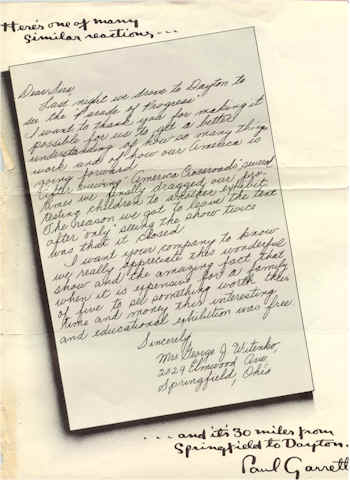 Here's one of many
similar reactions...
Dear Sirs
Last night we drove to Dayton to
see the Parade of Progress.
I want to thank you for making it
possible for us to get a better
understanding of how so many things
work and of how our America is
going forward.
After viewing "America Crossroads" several
times we finally dragged our pro-
testing children to another exhibit.
The reason we got to leave the tent
after "only" seeing the show twice
was that it closed.
I want your company to know
we really appreciate this wonderful
show and the amazing fact that
when it is expensive for a family
of five to see something worth their
time and money this interesting
and educational exhibition was free.
Sincerely,
Mrs George J. Witenko,
2029 Elmwood Ave
Springfield, Ohio
...and it's 30 miles from
Springfield to Dayton.
Paul Garrett